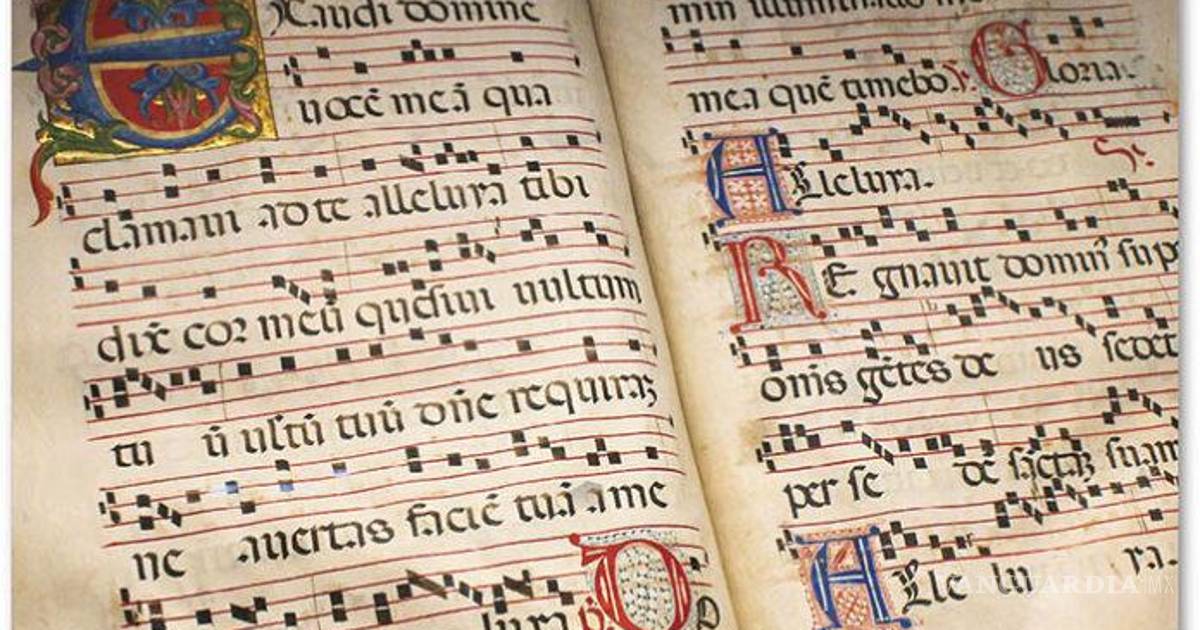 EXaudi domine
vocē meā qua
clamaui ad te alleluya tibi
dix̄ cor meū quesiui uultum
tuū uultū tuū dn̄e requirā
ne auertas faciē tuā a me
luya ℣ D
min illuminatio
mea quē timebo ℣ Gloria.
ALleluya.
REgnauit domin' sup
om̄s gētes de us sedet
per se dē sāctā suam
ALle lu ya.
VANGUARDIA MX